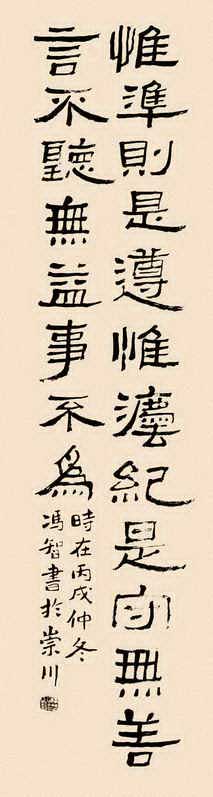 惟準則是遵惟灋紀是向無善
言不聽無益事不為
時在丙戌仲冬
馮智書於崇川